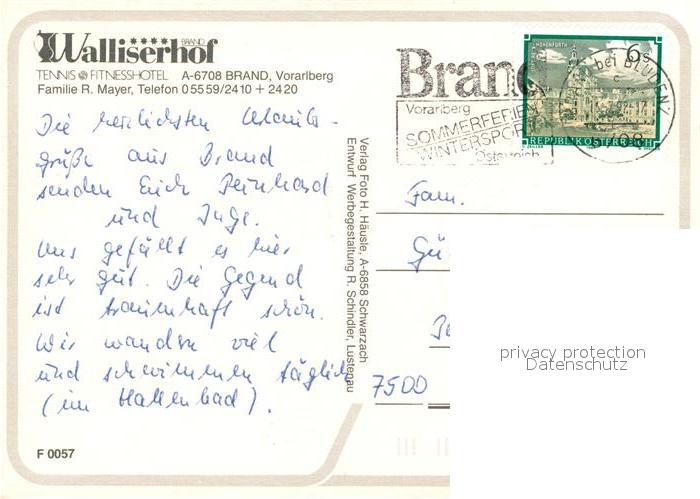 Walliserhof
BRAND
TENNIS FITNESSHOTEL A-6708 BRAND, Vorarlberg
Familie R. Mayer, Telefon 05559/2410 + 2420
Die herzlichsten Urlaubs-
grüße aus Brand
senden Euch Reinhard
und Inge.
Uns gefällt es hier
sehr gut. Die Gegend
ist traumhaft schön.
Wir wandern viel
und schwimmen täglich
(im Hallenbad).
F 0057
Verlag Foto H. Häusle, A-6858 Schwarzach
Entwurf Werbegestaltung R. Schindler, Lustenau
Brand
Vorarlberg
SOMMERFERIEN
WINTERSPORT
Österreich
STIFT HOHENFURTH
6 S
REPUBLIK ÖSTERREICH
bei BLUDENZ
6708
Fam.
Gü
7500
privacy protection
Datenschutz